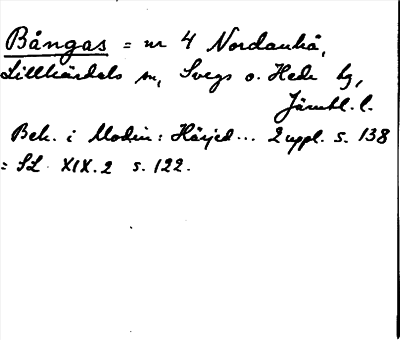 Bångas = nr 4 Nordanhå,
Lillhärdals sn, Svegs o. Hede tg,
Jämtl. l.
Beh. i Modin: Härjed... 2 uppl. s. 138
= SL XIX.2 s. 122.